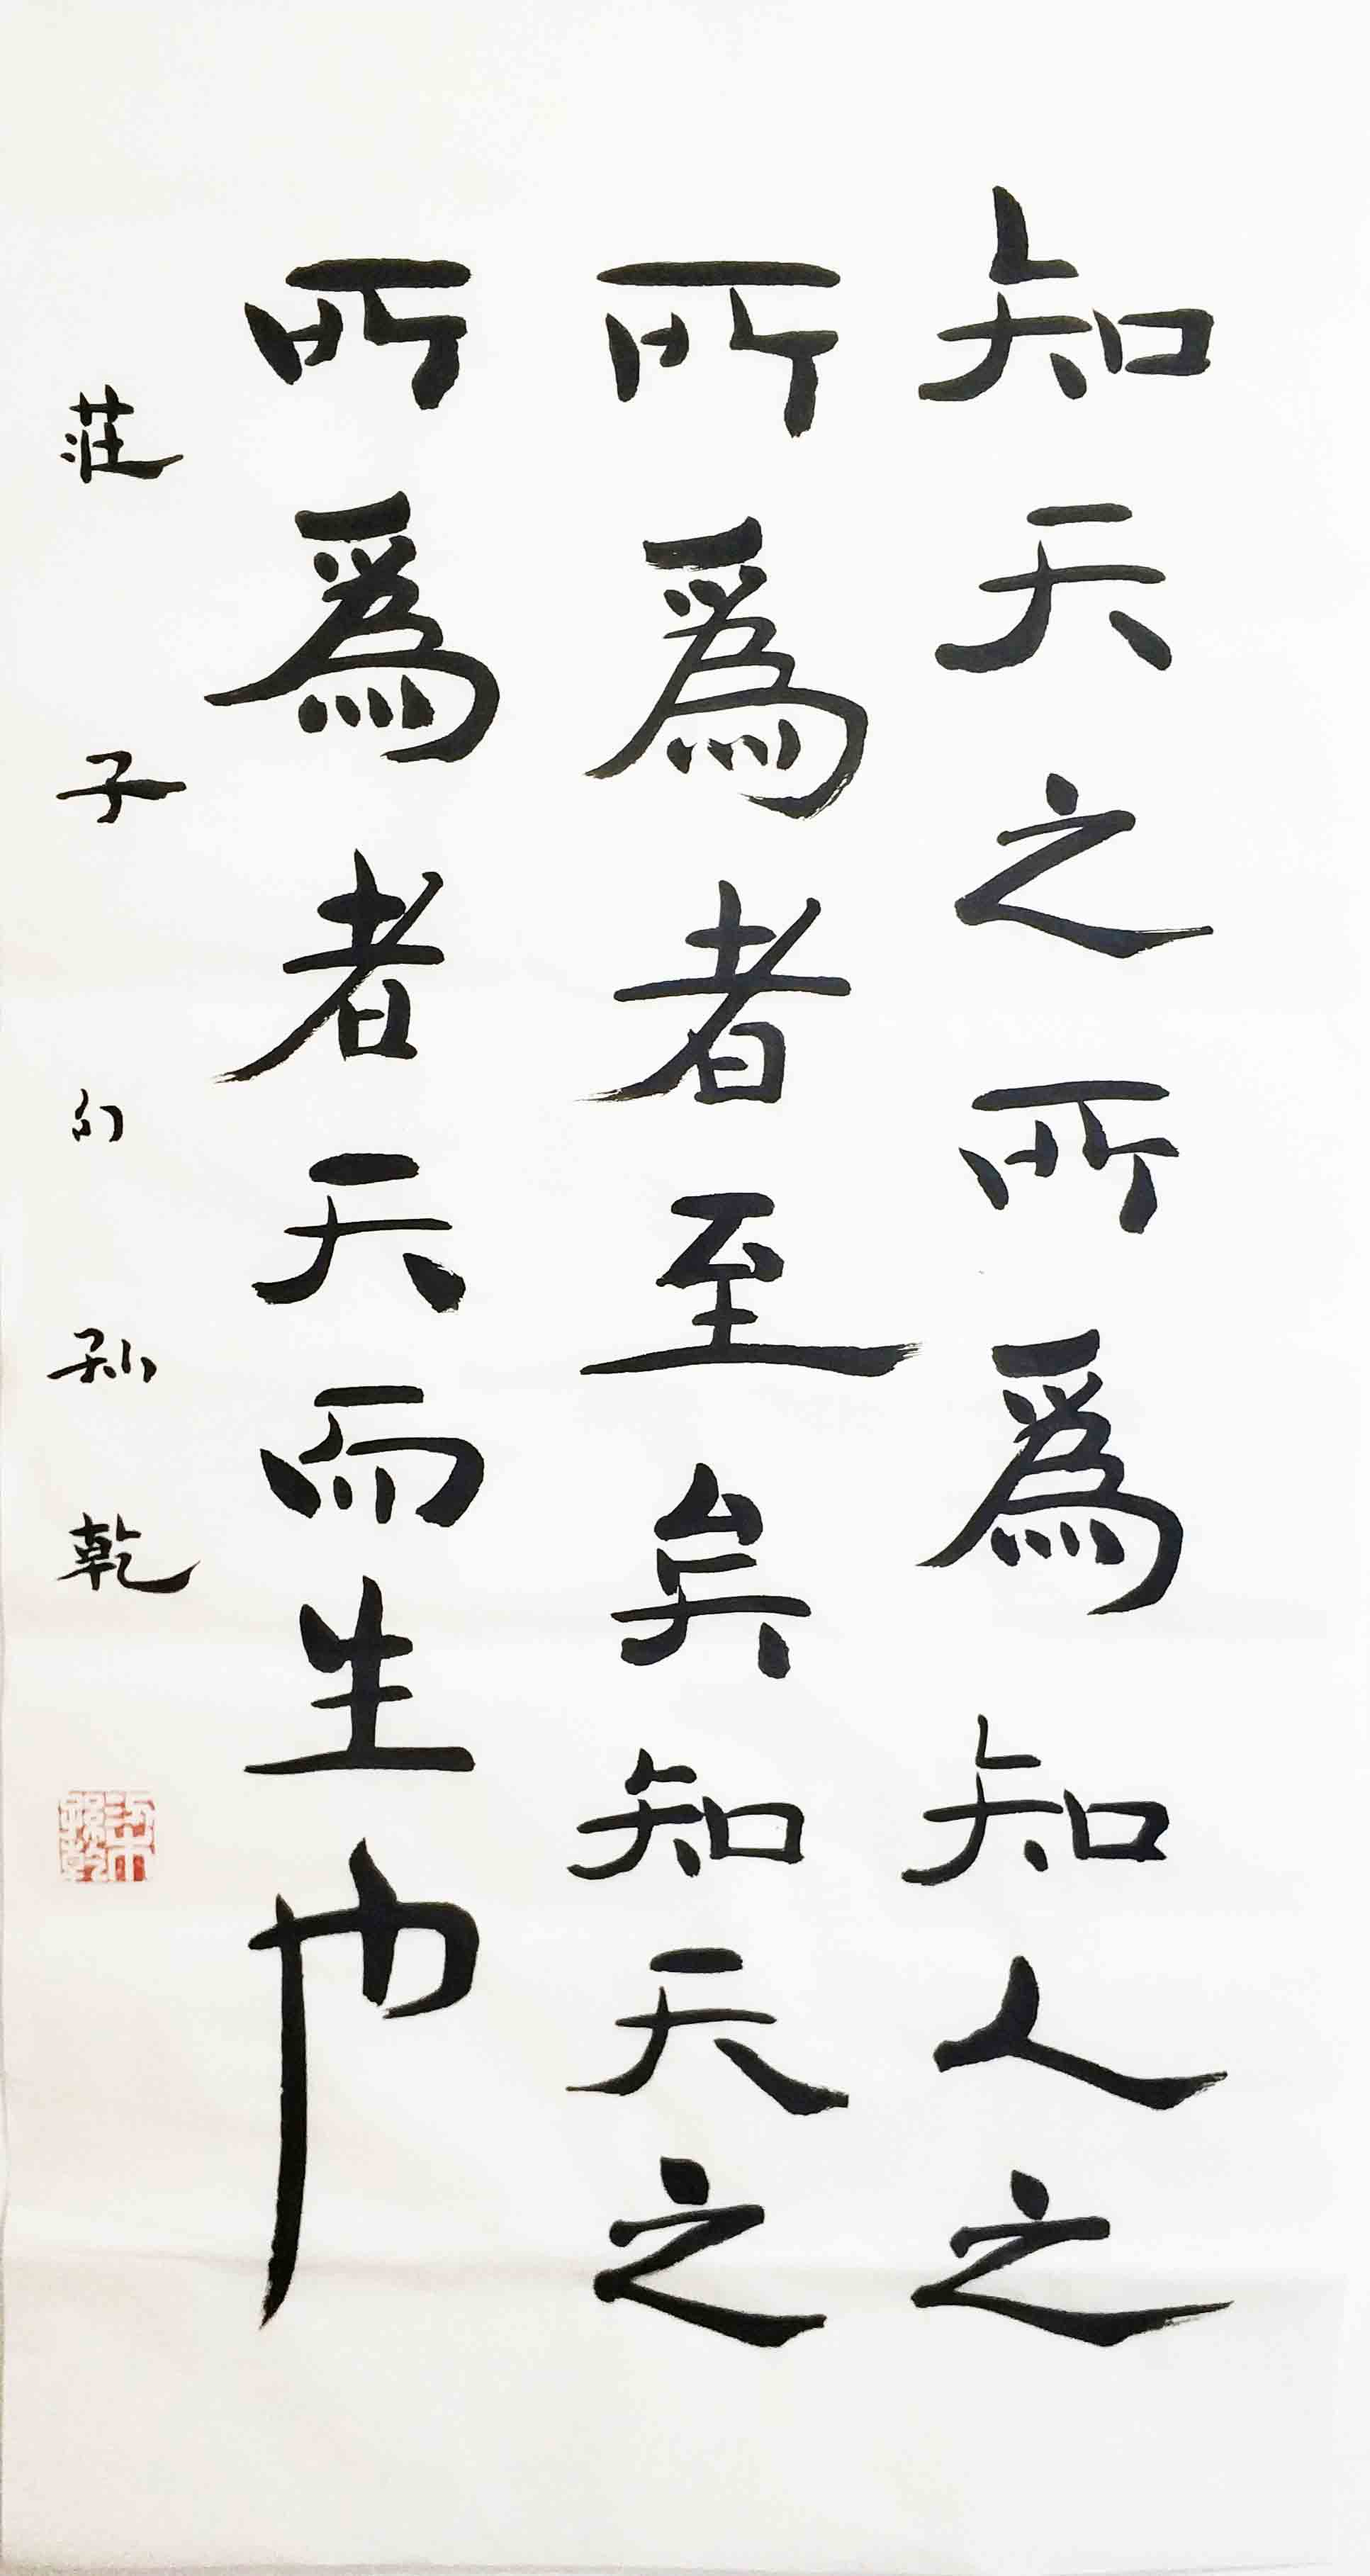 知天之所爲知人之
所爲者至矣知天之
所爲者天而生也
莊子句孙乾